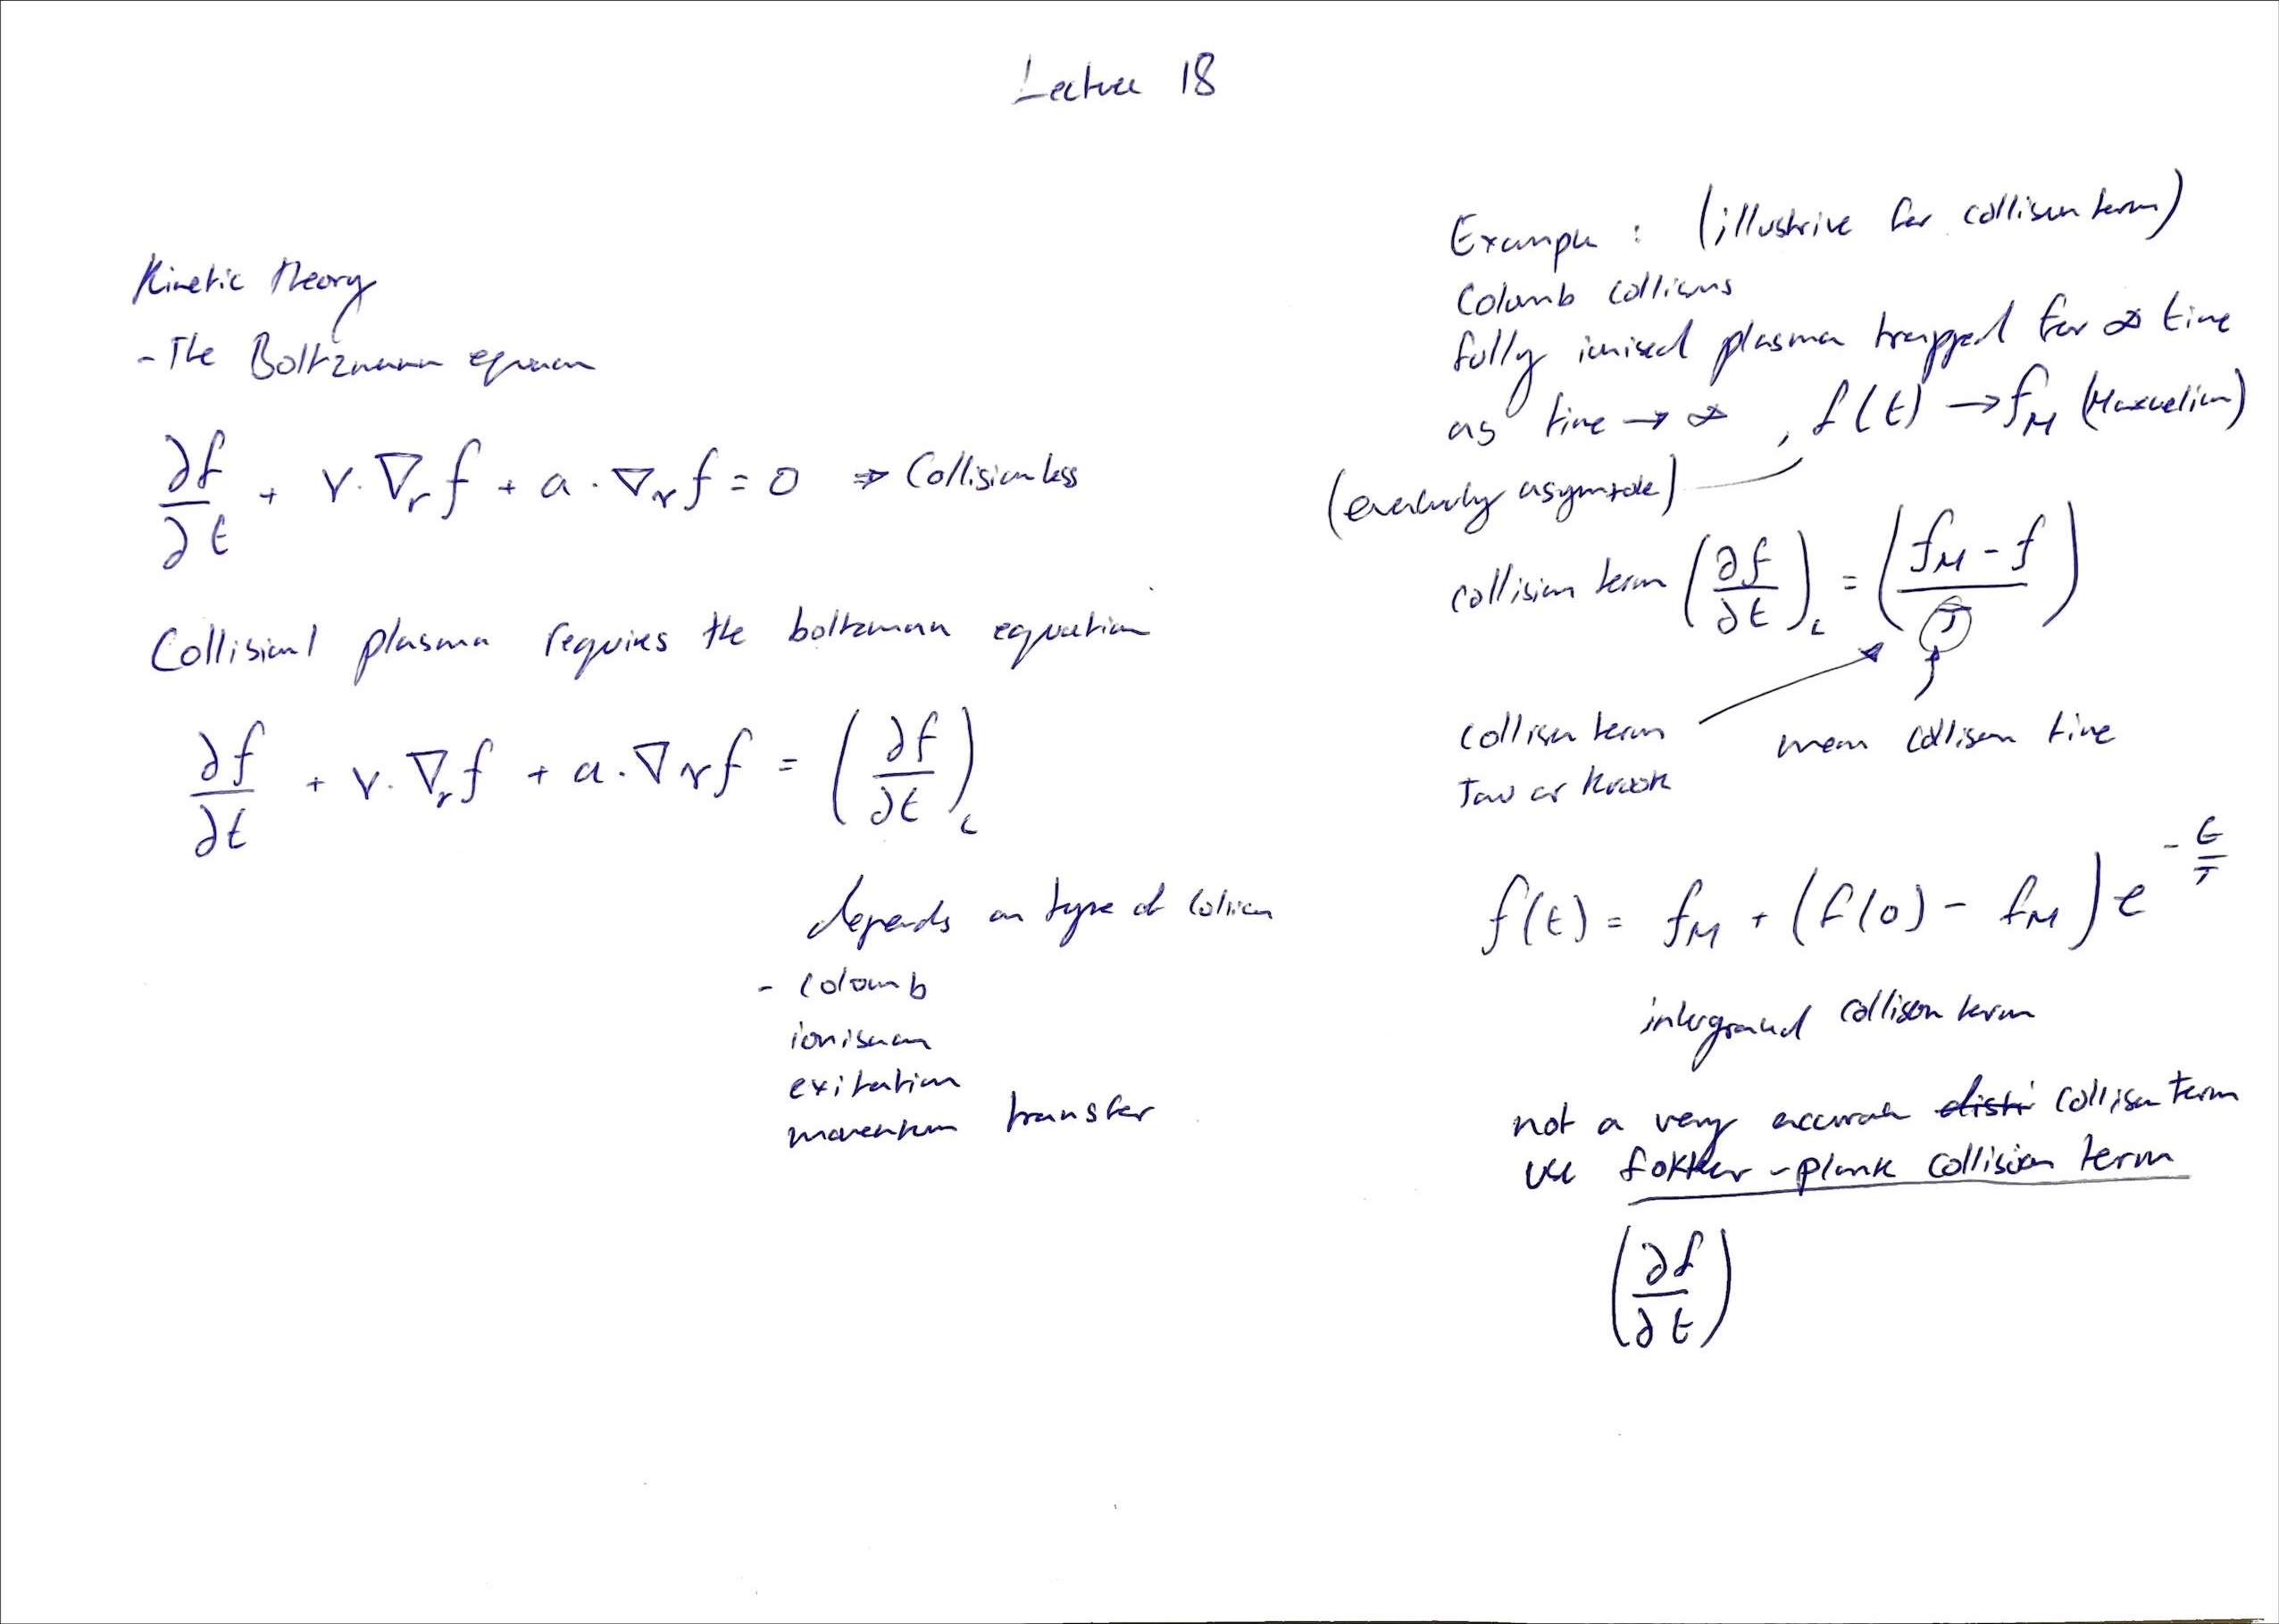 Lecture 18
Kinetic theory
- The Boltzmann equation
∂f/∂t + v·∇_r f + a·∇_v f = 0 ⇒ Collisionless
Collisional plasma requires the boltzman equation
∂f/∂t + v·∇_r f + a·∇_v f = (∂f/∂t)_c
depends on type of
- Colomb
ionisation
exitation
momentum transfer
Example : (illustrive for collision term)
Colomb collisions
fully ionised plasma trapped for ∞ time
as time → ∞, f(t) → f_M (Maxwelian)
(eventually asymtote)
collision term (∂f/∂t)_c = ((f_M - f)/τ)
collision term mean collison time
Tau or krook
f(t) = f_M + (f(0) - f_M) e^(-t/τ)
collison term
not a very accurate collision term
use fokker-plank collision term
(∂f/∂t)